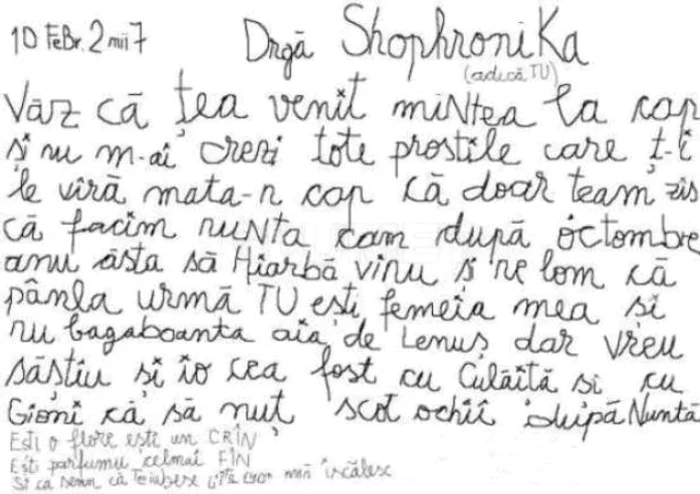 10 FeBr. 2 mii 7 Drgă ShophroniKa
(adică TU)
Văz că țea venit miNtea la cap
și nu m-ai crezi tote prostile care ț-li
le viră mata-n cap că doar team zis
că facim nuNta cam după octombre
anu ăsta să Hiarbă vinu și ne lom că
pânla urmă TU ești femeia mea și
nu bagaboanta aia de Lenuș dar vreu
săștiu și io cea fost cu Culăită și cu
Gioni că să nuț scot ochii după Nuntă
Ești o flore ești un CRÎN
Ești parfumu celmai FÎN
Și ca semn că Teiubesc mă iscălesc